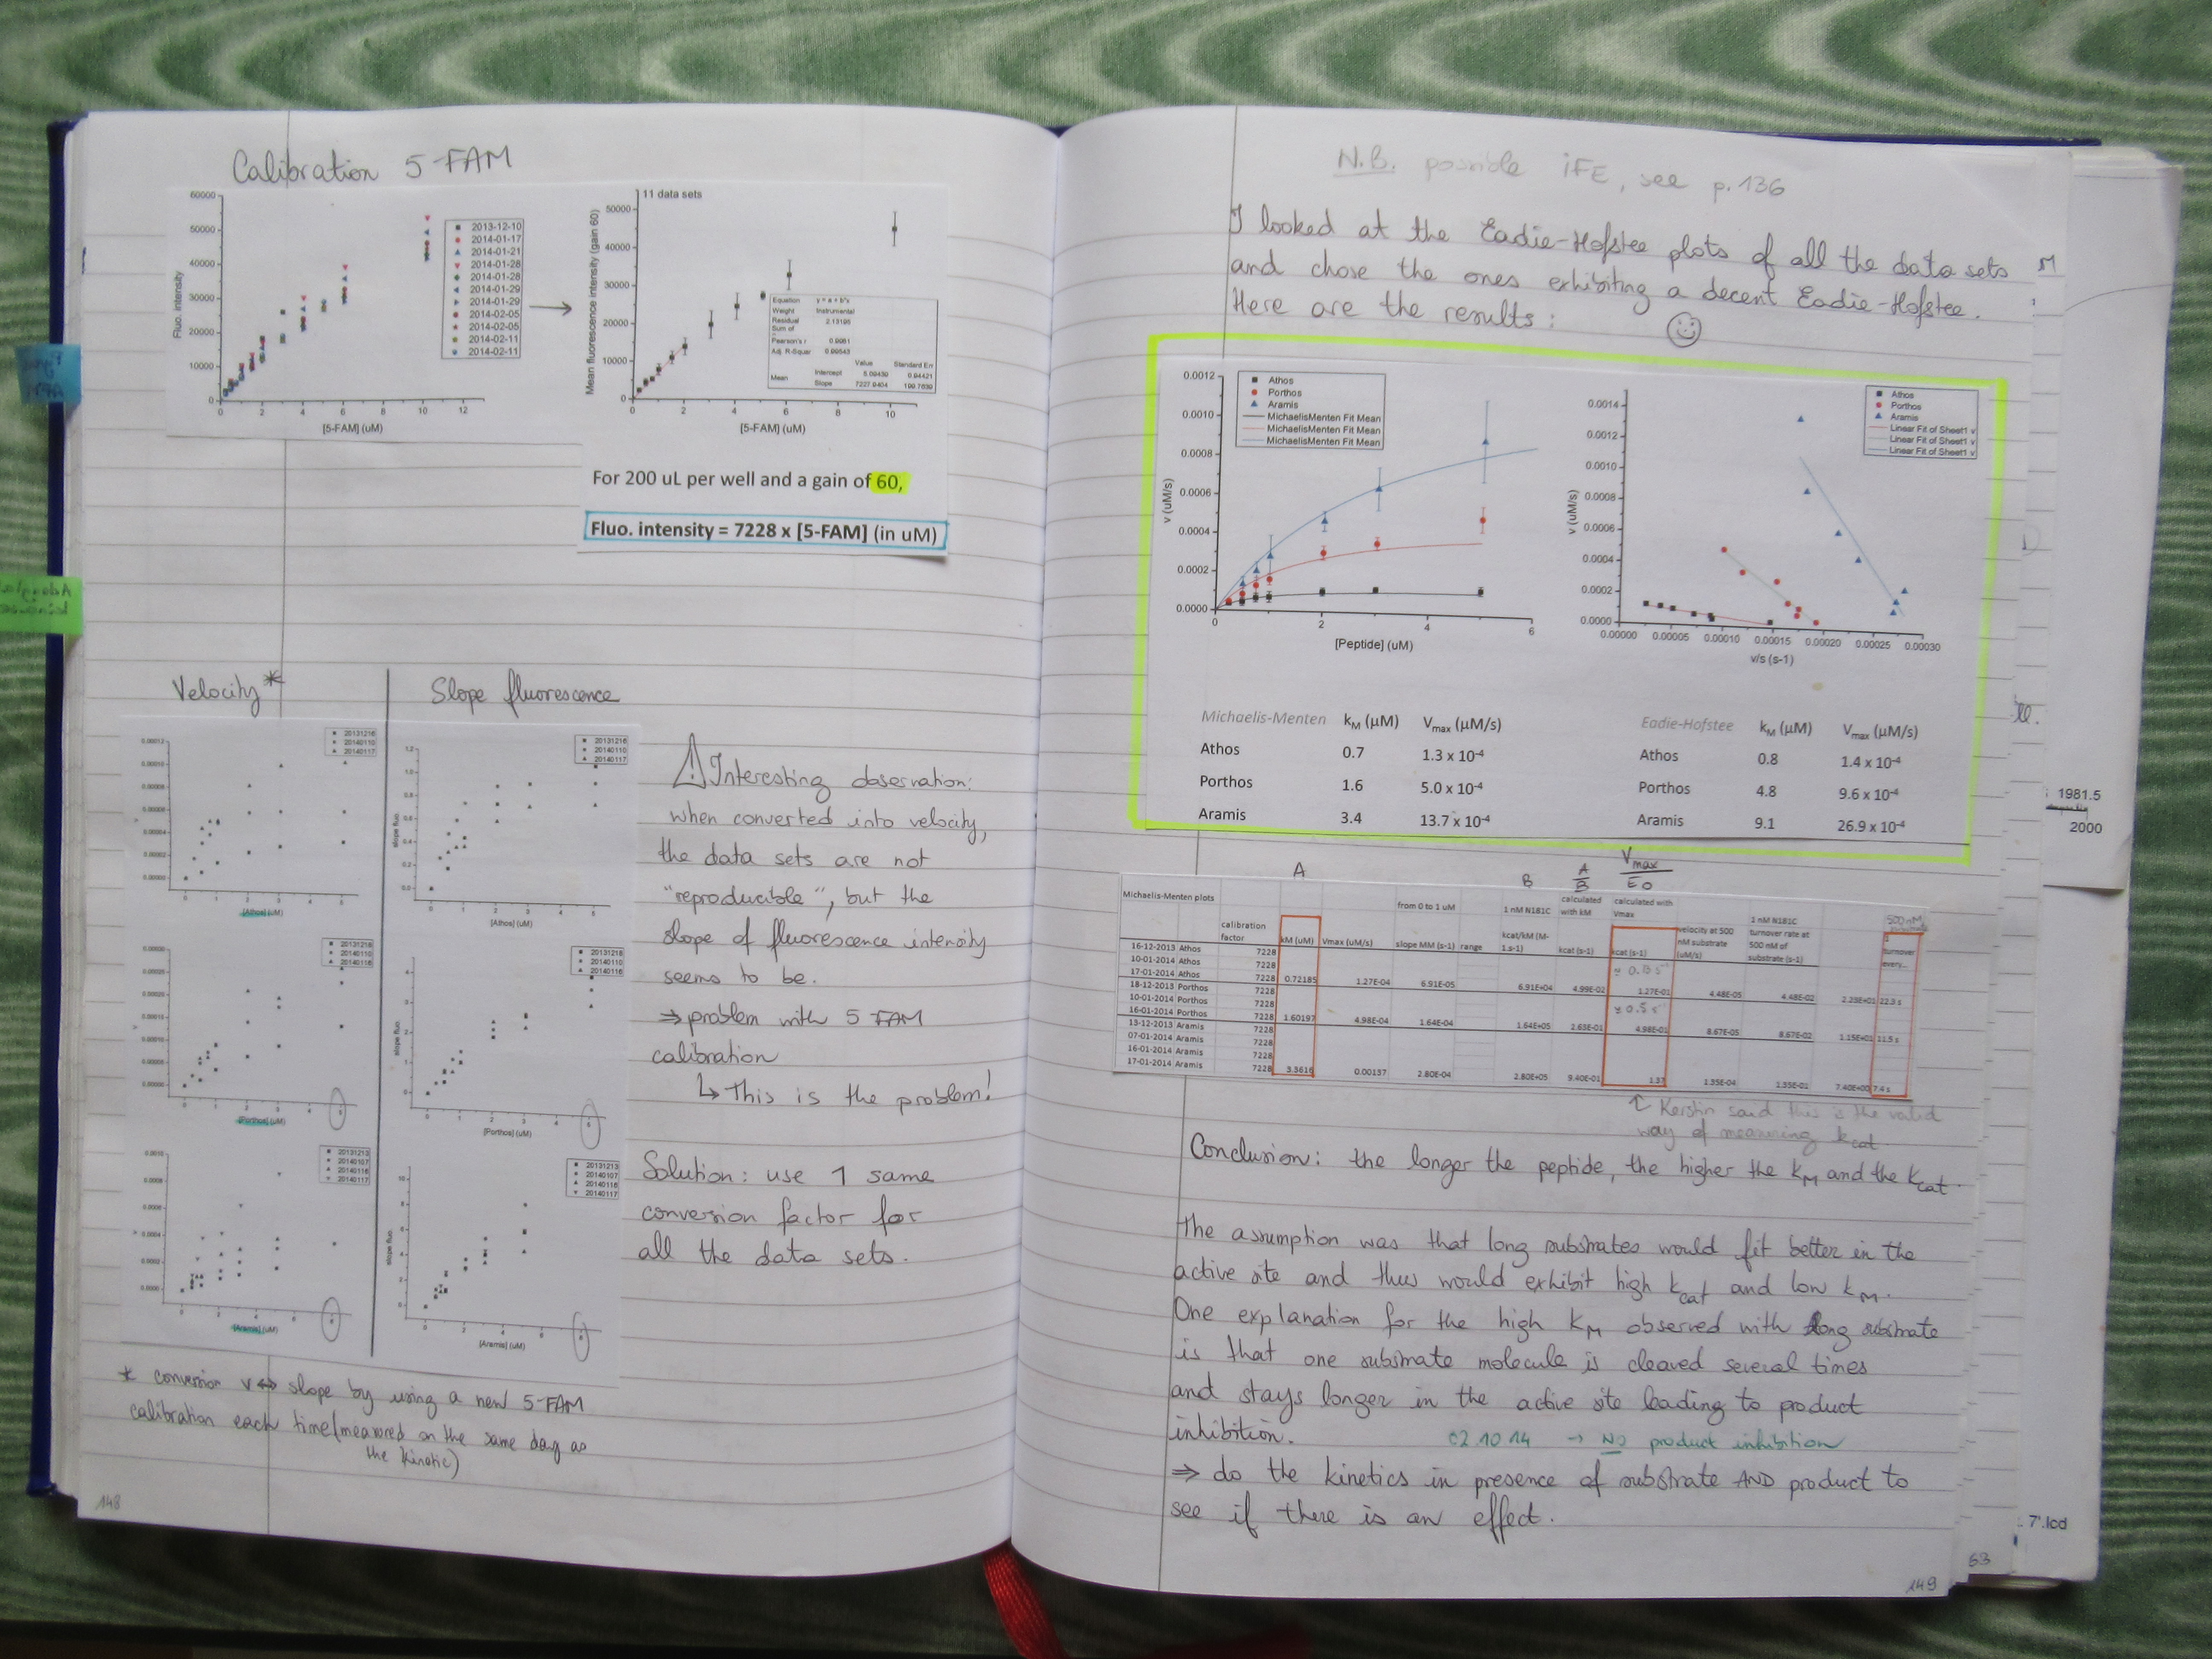 Calibration 5-FAM
60000
50000
40000
30000
20000
10000
0
Fluo. intensity
0 2 4 6 8 10 12
[5-FAM] (uM)
2013-12-10
2014-01-17
2014-01-21
2014-01-28
2014-01-28
2014-01-29
2014-01-29
2014-02-05
2014-02-05
2014-02-11
2014-02-11
11 data sets
50000
40000
30000
20000
10000
0
Mean fluorescence intensity (gain 60)
0 2 4 6 8 10
[5-FAM] (uM)
Equation y = a + b*x
Weight Instrumental
Residual Sum of
Pearson's r
Adj. R-Square
Value Standard Err
Mean Intercept
Slope
For 200 uL per well and a gain of 60,
Fluo. intensity = 7228 x [5-FAM] (in uM)
Velocity*
Slope fluorescence
20131216
20140110
20140117
[Athos] (uM)
20131216
20140110
20140117
slope fluo.
[Athos] (uM)
20131218
20140110
20140116
[Porthos] (uM)
20131218
20140110
20140116
slope fluo.
[Porthos] (uM)
20131213
20140107
20140116
20140117
[Aramis] (uM)
20131213
20140107
20140116
20140117
slope fluo.
[Aramis] (uM)
Interesting observation:
when converted into velocity,
the data sets are not
"reproducible", but the
slope of fluorescence intensity
seems to be.
⇒ problem with 5 FAM
calibration
↳ This is the problem!
Solution: use 1 same
conversion factor for
all the data sets.
* conversion v ↔ slope by using a new 5-FAM
calibration each time (measured on the same day as
the kinetic)
148
N.B. possible iFE, see p.136
I looked at the Eadie-Hofstee plots of all the data sets
and chose the ones exhibiting a decent Eadie-Hofstee.
Here are the results:
0.0012
0.0010
0.0008
0.0006
0.0004
0.0002
0.0000
v (uM/s)
Athos
Porthos
Aramis
MichaelisMenten Fit Mean
MichaelisMenten Fit Mean
MichaelisMenten Fit Mean
0 2 4 6
[Peptide] (uM)
0.0014
0.0012
0.0010
0.0008
0.0006
0.0004
0.0002
0.0000
v (uM/s)
Athos
Porthos
Aramis
Linear Fit of Sheet1 v
Linear Fit of Sheet1 v
Linear Fit of Sheet1 v
0.00000 0.00005 0.00010 0.00015 0.00020 0.00025 0.00030
v/s (s-1)
Michaelis-Menten kM (µM) Vmax (µM/s)
Athos 0.7 1.3 x 10-4
Porthos 1.6 5.0 x 10-4
Aramis 3.4 13.7 x 10-4
Eadie-Hofstee kM (µM) Vmax (µM/s)
Athos 0.8 1.4 x 10-4
Porthos 4.8 9.6 x 10-4
Aramis 9.1 26.9 x 10-4
A B A/B Vmax/E0
Michaelis-Menten plots
calibration factor kM (uM) Vmax (uM/s) from 0 to 1 uM slope MM (s-1) range 1 nM N181C kcat/kM (M-1.s-1) calculated with kM kcat (s-1) calculated with Vmax kcat (s-1) velocity at 500 nM substrate (uM/s) 1 nM N181C turnover rate at 500 nM of substrate (s-1) 500 nM 1 turnover every...
16-12-2013 Athos 7228
10-01-2014 Athos 7228
17-01-2014 Athos 7228 0.72185 1.27E-04 6.91E-05 6.91E+04 4.99E-02 1.27E-01 4.48E-05 4.48E-02 22.3 s
18-12-2013 Porthos 7228
10-01-2014 Porthos 7228
16-01-2014 Porthos 7228 1.60197 4.98E-04 1.64E-04 1.64E+05 2.63E-01 4.98E-01 8.67E-05 8.67E-02 1.15E+01 11.5 s
13-12-2013 Aramis 7228
07-01-2014 Aramis 7228
16-01-2014 Aramis 7228
17-01-2014 Aramis 7228 3.3616 0.00137 2.80E-04 2.80E+05 9.40E-01 1.37 1.35E-04 1.35E-01 7.40E+00 7.4 s
Kerstin said this is the valid
way of measuring kcat
Conclusion: the longer the peptide, the higher the kM and the kcat.
The assumption was that long substrates would fit better in the
active site and thus would exhibit high kcat and low kM.
One explanation for the high kM observed with long substrate
is that one substrate molecule is cleaved several times
and stays longer in the active site leading to product
inhibition. 02.10.14 → NO product inhibition
⇒ do the kinetics in presence of substrate AND product to
see if there is an effect.
149
63
1981.5
2000
7'.lcd